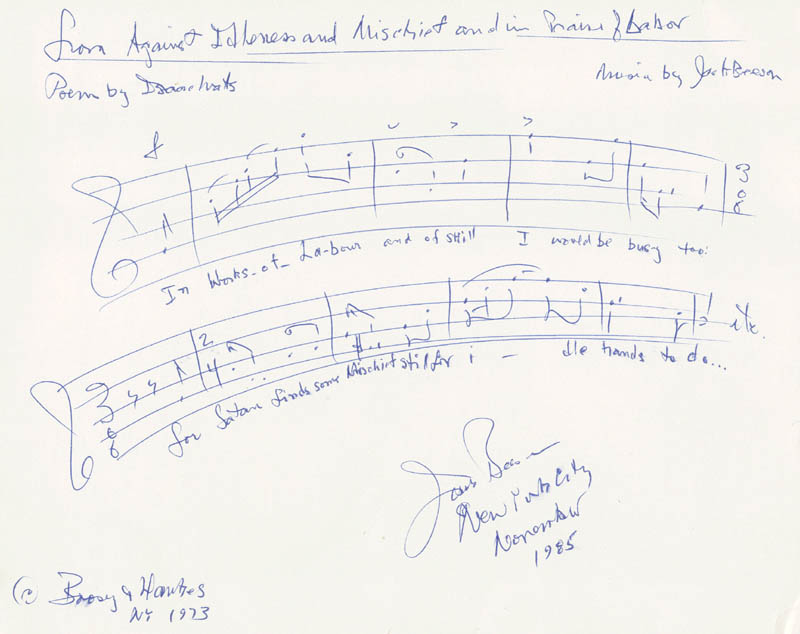 from Against Idleness and Mischief and in Praise of Labor
Poem by Isaac Watts
Music by Jack Beeson
f
3
8
In Works-of-La-bour and of still I would be busy too:
3
8
2
4
etc.
for Satan finds some Mischief still for i - dle hands to do...
Jack Beeson
New York City
November
1985
© Boosey & Hawkes
NY 1973